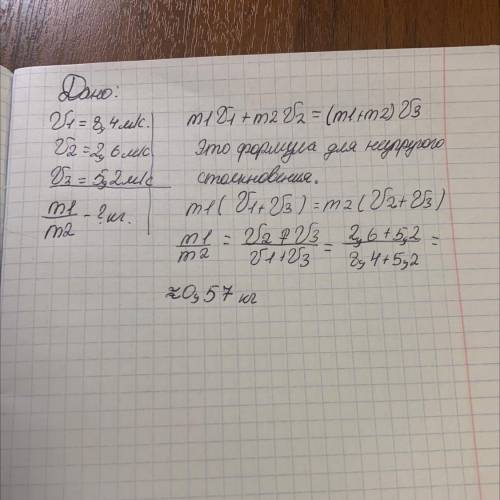 Дано:
V1 = 8,4 м/с.
V2 = 2,6 м/с
V3 = 5,2 м/с
m1/m2 - ? кг.
m1V1 + m2V2 = (m1+m2)V3
Это формула для неупругого
столкновения.
m1(V1+V3) = m2(V2+V3)
m1/m2 = V2+V3/V1+V3 = 2,6+5,2/8,4+5,2 =
≈0,57 кг